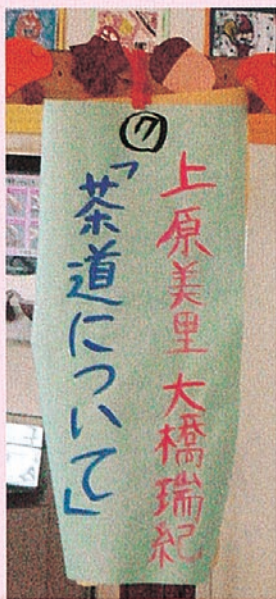 ⑦
上原美里 大橋瑞紀
「茶道について」